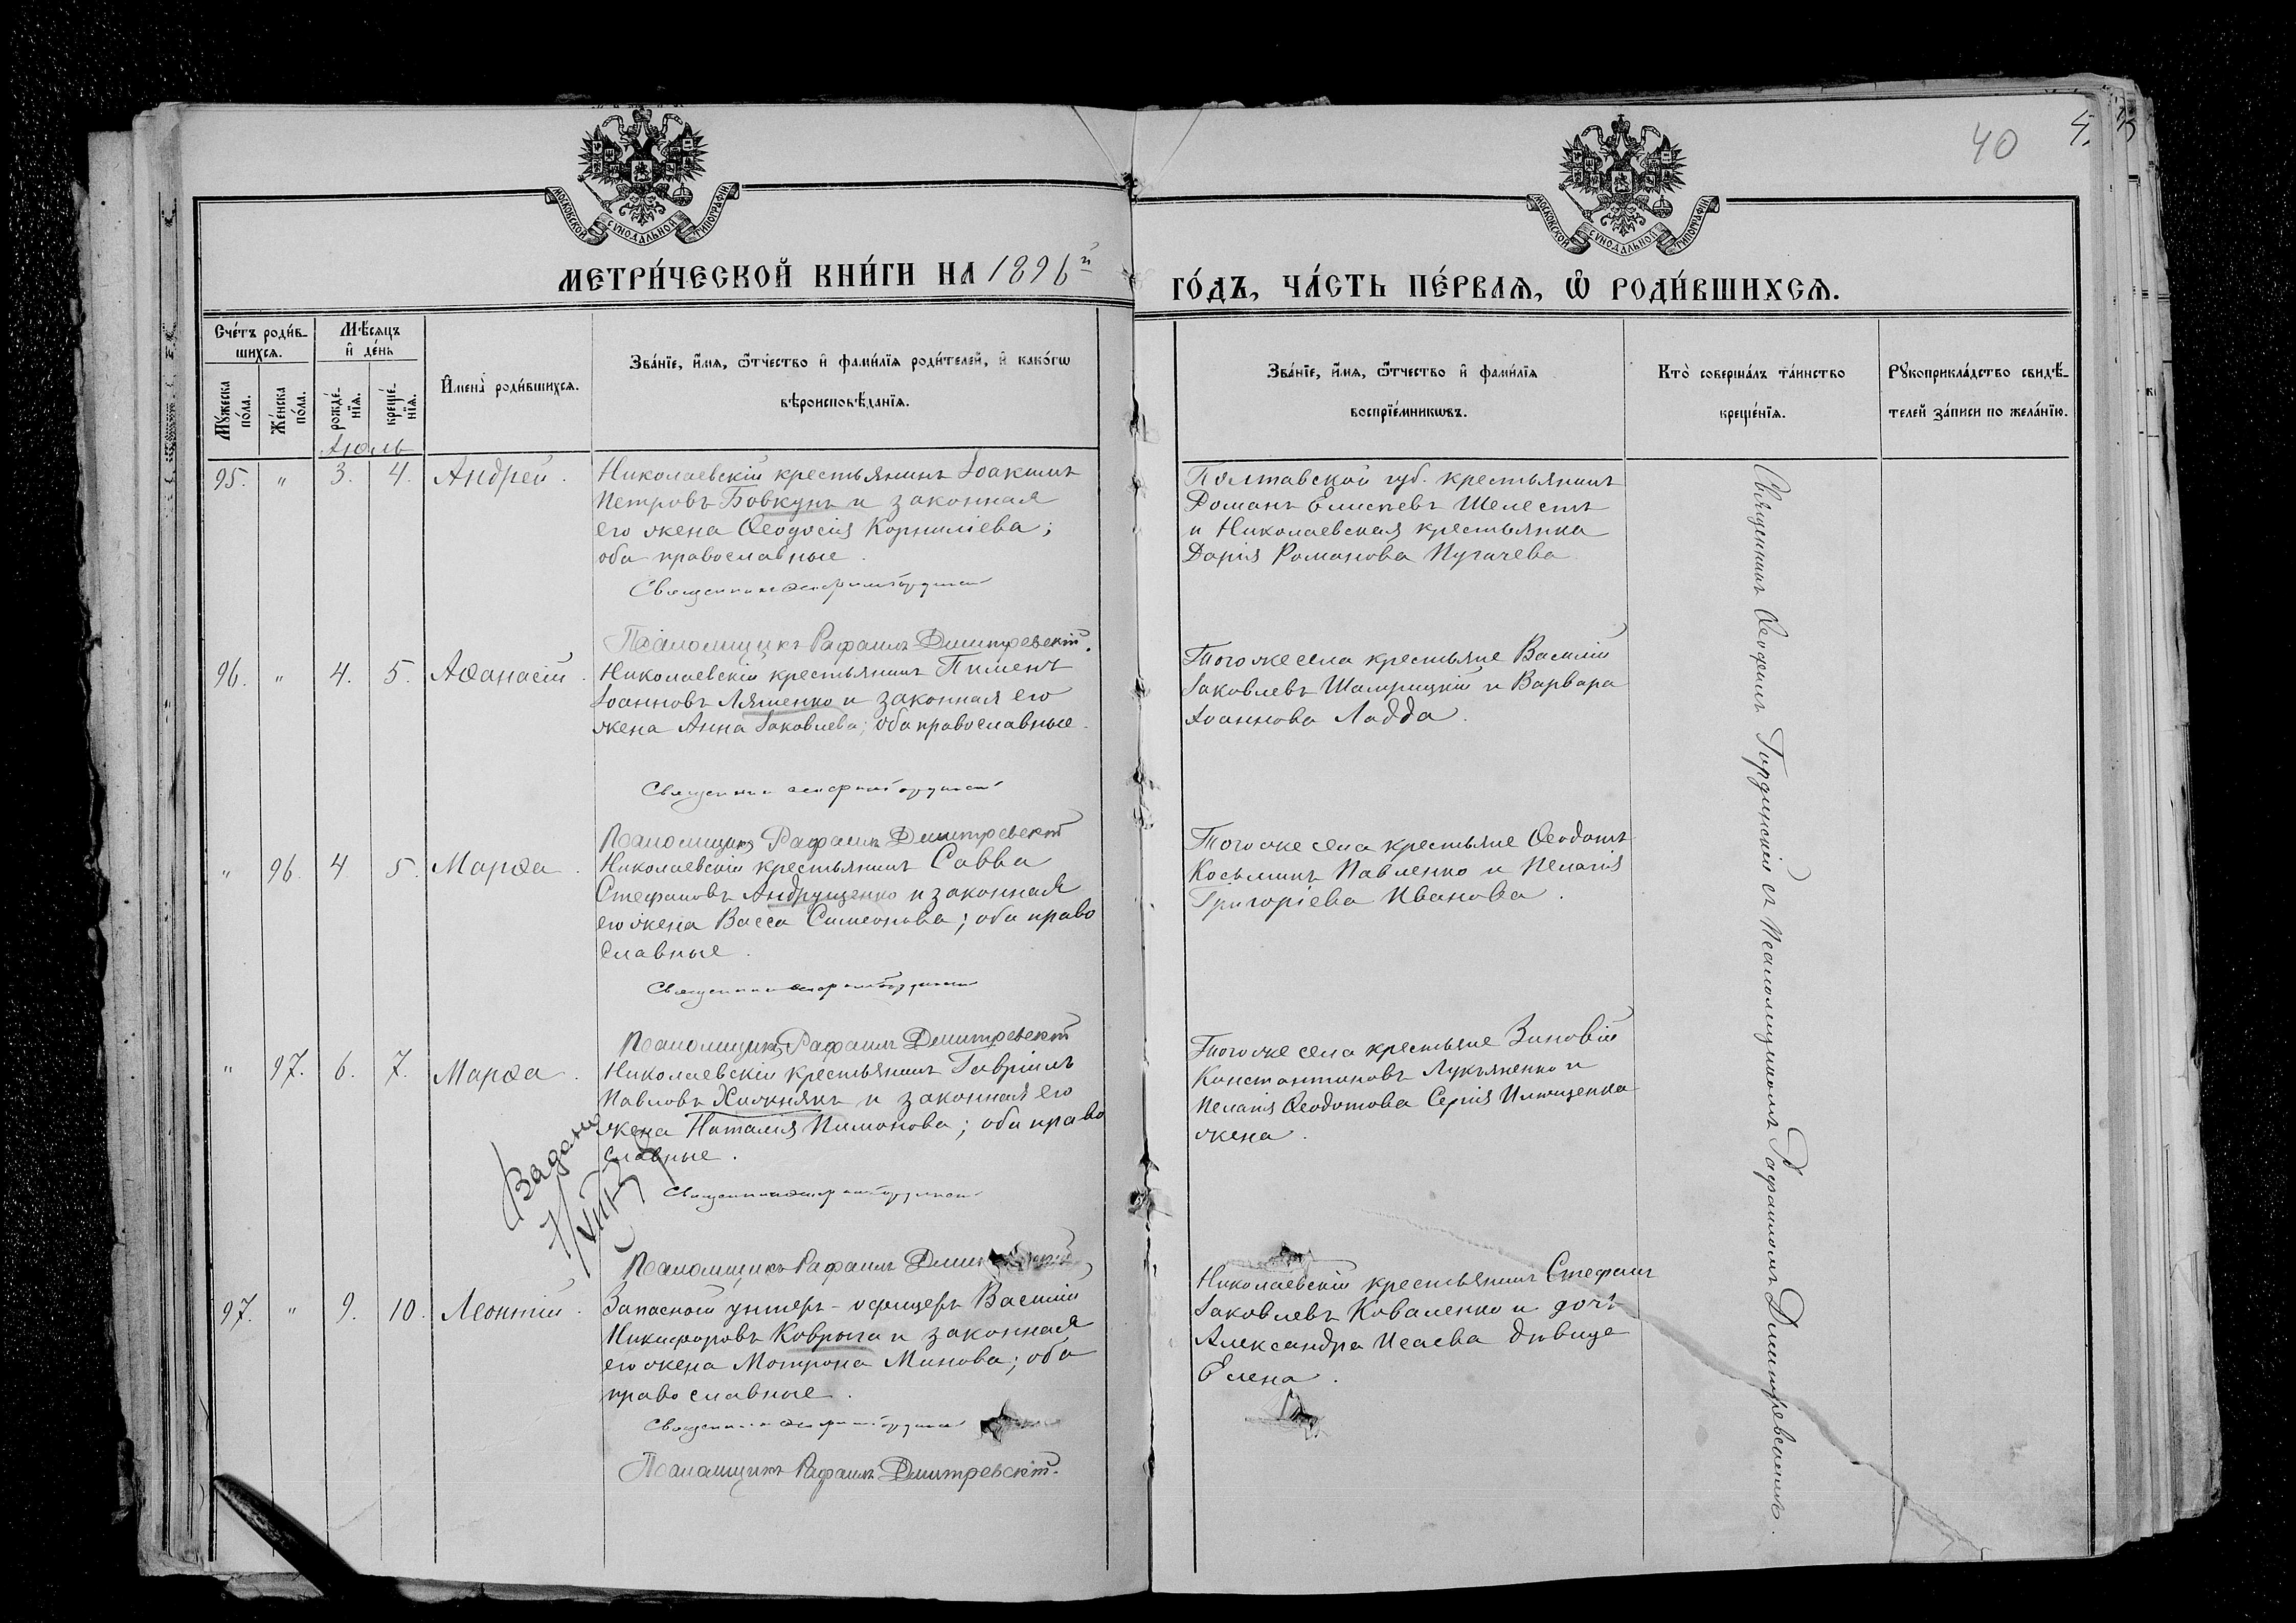 40
МОСКОВСКОЙ СѴНОДАЛЬНОЙ ТИПОГРАФІИ
МОСКОВСКОЙ СѴНОДАЛЬНОЙ ТИПОГРАФІИ
МЕТРИ́ЧЕСКОЙ КНИ́ГИ НА 1896й
ГО́ДЪ, ЧА́СТЬ ПЕ́РВАѦ, Ѡ҆ РОДИ́ВШИХСѦ.
Сче́тъ роди́в-
шихсѧ.
Мꙋ́жеска по́ла.
Же́нска по́ла.
Мѣ́сѧцъ
и҆ де́нь
рожде́-нїѧ.
креще́-нїѧ.
И҆мена̀ роди́вшихсѧ.
Зва́нїе, и҆́мѧ, ѻ҆́тчество и҆ фами́лїѧ роди́телей, и҆ како́гѡ
вѣроисповѣ́данїѧ.
Зва́нїе, и҆́мѧ, ѻ҆́тчество и҆ фами́лїѧ
воспрїе́мникѡвъ.
Кто̀ соверша́лъ та́инство
креще́нїѧ.
Рꙋкоприкла́дство свидѣ́-
телей за́писи по жела́нїю.
Іюль
95. " 3. 4. Андрей.
Николаевскій крестьянинъ Іоакимъ
Петровъ Бовкунъ и законная
его жена Ѳеодосія Корниліева;
оба православные.
Священникъ
Псаломщикъ Рафаилъ Димитревскій.
Полтавской губ. крестьянинъ
Романъ Шелестъ
и Николаевская крестьянка
Дарія Романова Пугачева
96. " 4. 5. Аѳанасій.
Николаевскій крестьянинъ Пименъ
Іоанновъ Ляшенко и законная его
жена Анна Іаковлева; оба православные.
Священникъ
Псаломщикъ Рафаилъ Димитревскій
Того же села крестьяне Василій
Іаковлевъ и Варвара
Іоаннова Ладда.
" 96. 4 5. Марѳа.
Николаевскій крестьянинъ Савва
Стефановъ Андрущенко и законная
его жена Васса Симеонова; оба право
славные.
Священникъ
Псаломщикъ Рафаилъ Димитревскій
Того же села крестьяне Ѳеодотъ
Косьминъ Павленко и Пелагія
Григоріева Иванова.
" 97. 6. 7. Марѳа.
Николаевскій крестьянинъ Гавріилъ
Павловъ Хижнякъ и законная его
жена Наталія Пимонова; оба право
славные.
Священникъ
Псаломщикъ Рафаилъ
Того же села крестьяне Зиновій
Константиновъ Лукьяненко и
Пелагія Ѳеодотова Сергія Ильющенка
жена.
97. " 9. 10. Леонтій.
Запасной унтеръ-офицеръ Василій
Никифоровъ Коврыга и законная
его жена Мотрона Минова; оба
православные.
Священникъ
Псаломщикъ Рафаилъ Димитревскій.
Николаевскій крестьянинъ Стефанъ
Іаковлевъ Коваленко и дочь
Александра Исаева дѣвица
Елена.
Священникъ Ѳеофилъ Гординскій съ Псаломщикомъ Рафаиломъ Димитревскимъ.